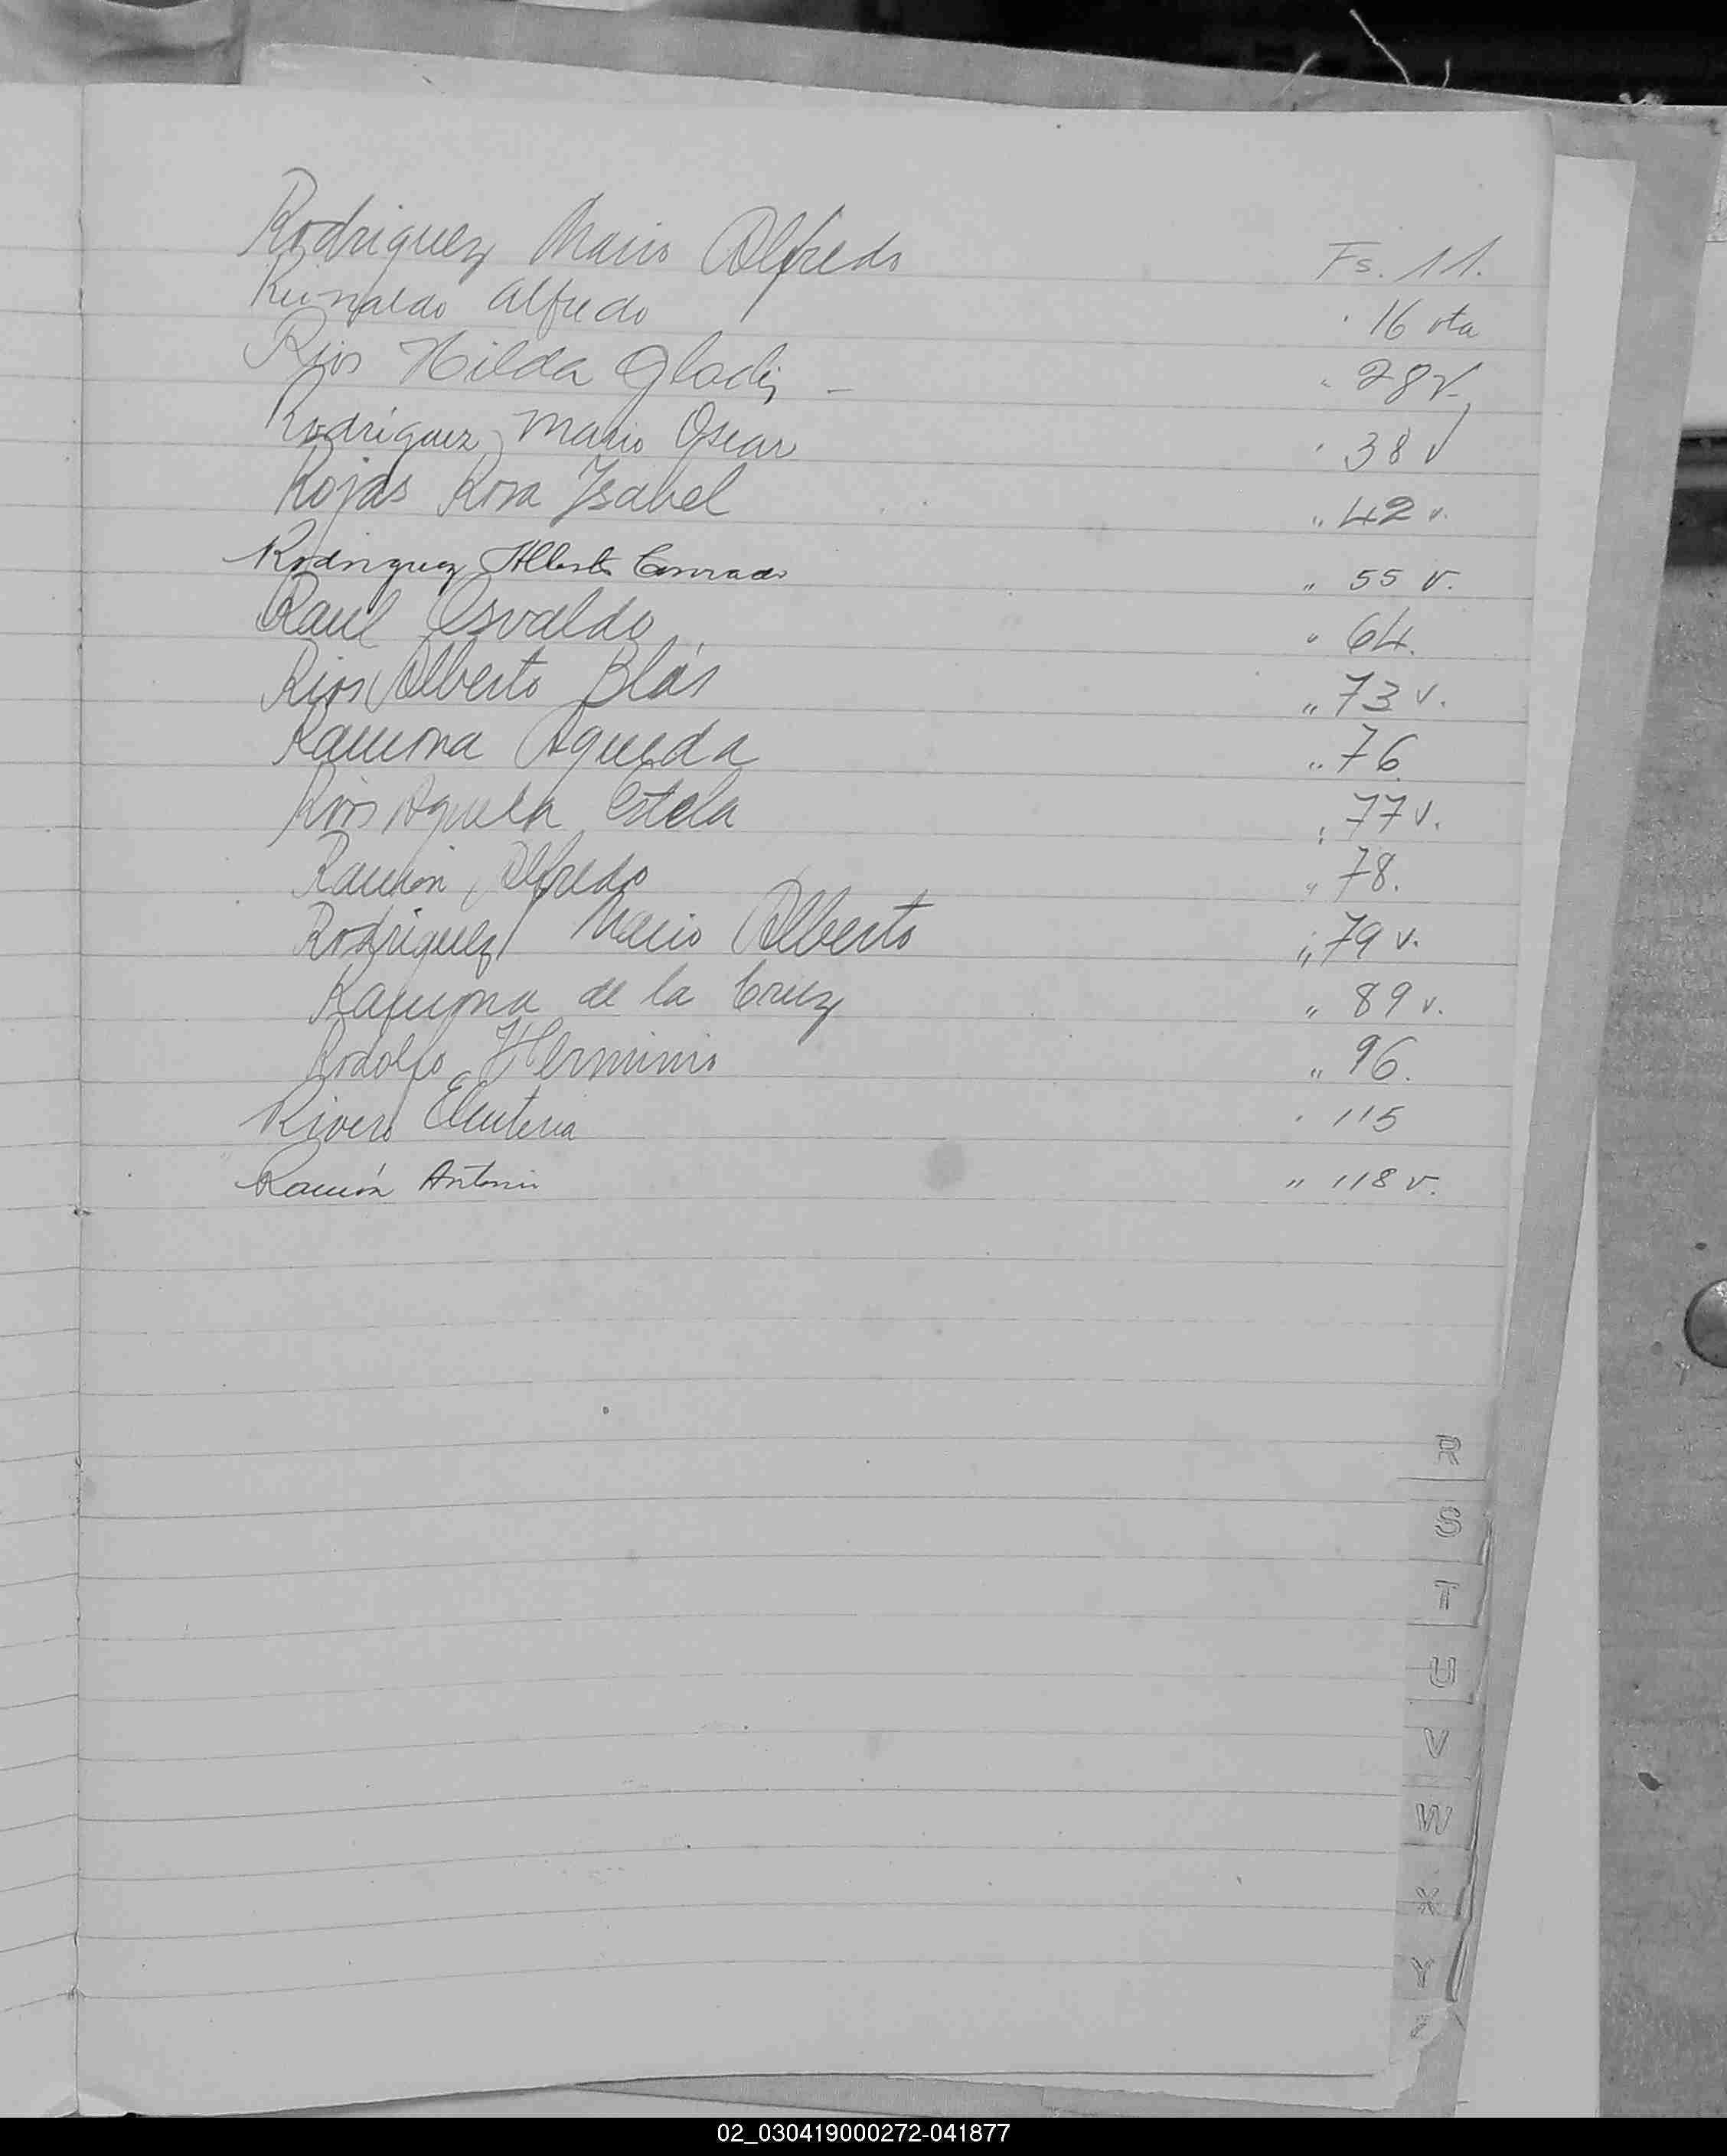 Rodriguez Mario Alfredo Fs. 11.
Reinaldo Alfredo " 16 vta
Rios Hilda Gladis - " 28 v.
Rodriguez, Mario Oscar " 38 v
Rojas Rosa Isabel " 42 v.
Rodriguez Alberto Conrado " 55 v.
Raul Osvaldo " 64.
Rios Alberto Blás " 73 v.
Ramona Agueda " 76.
Rios Estela " 77 v.
Ramón Alfredo " 78.
Rodriguez Mario Alberto " 79 v.
Ramona de la Cruz " 89 v.
Rodolfo Herminio " 96.
Rivero Eleuteria " 115
Ramón Antonio " 118 v.
R
S
T
U
V
W
X
Y
Z
02_030419000272-041877